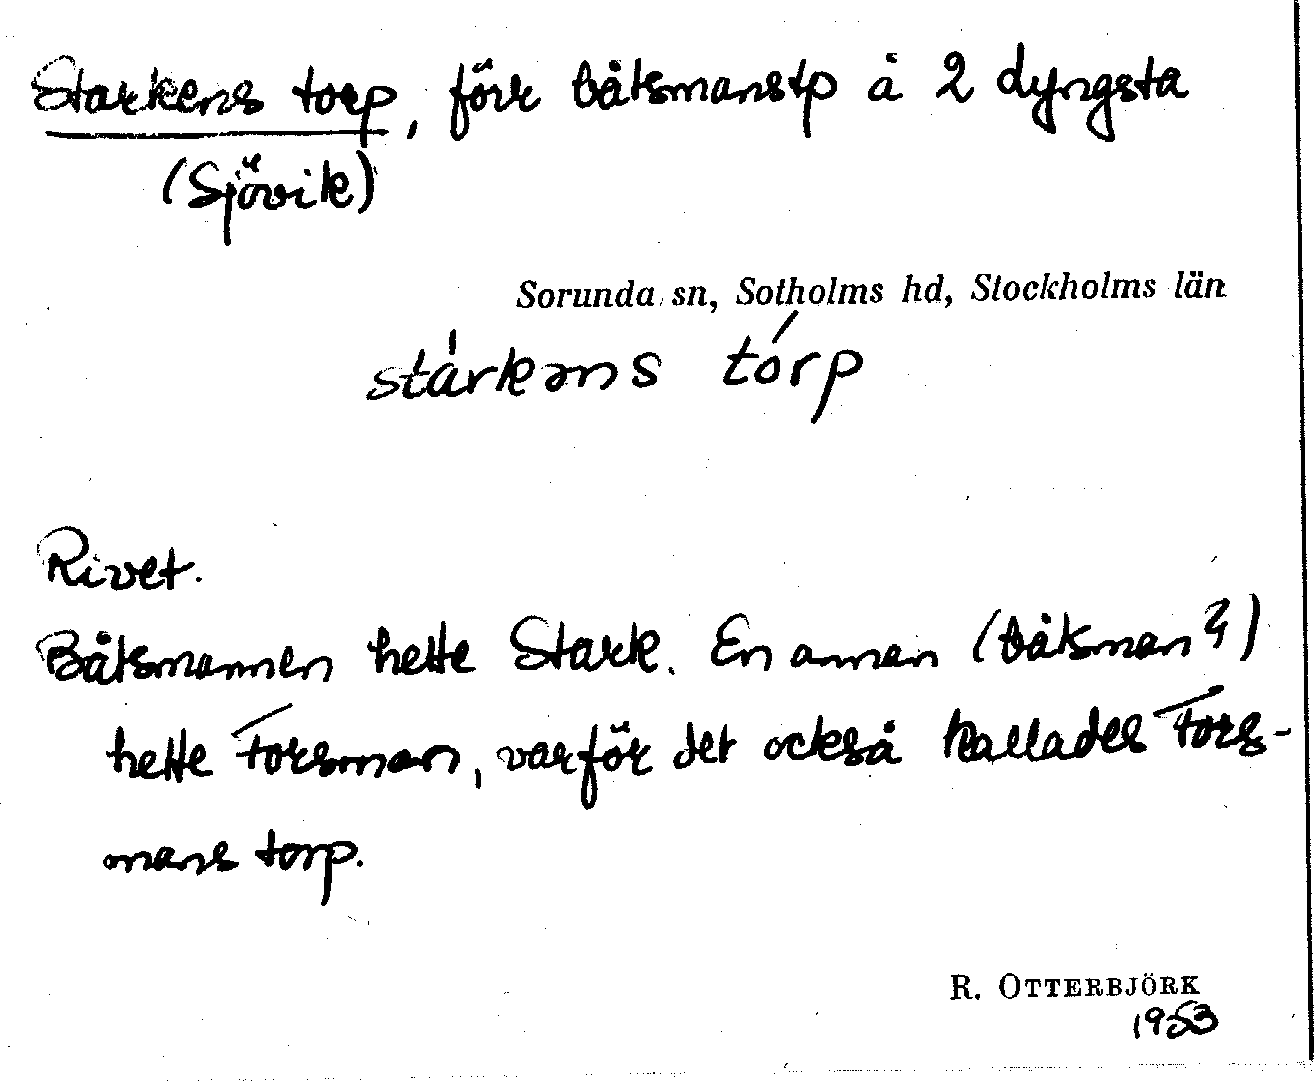 Starkens torp, förr båtsmanstp å 2 dyngsta
(Sjövik)
Sorunda sn, Sotholms hd, Stockholms län
stárkəns tórp
Rivet.
Båtsmannen hette Stark. En annan (båtsman?)
hette Forsman, varför det också kallades Fors-
mans torp.
R. OTTERBJÖRK
1953